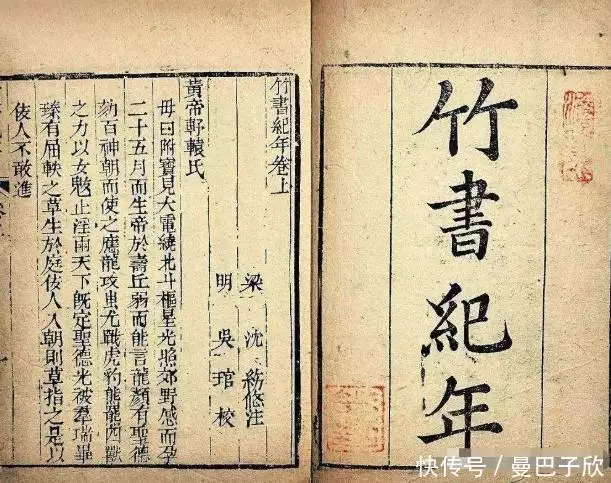 竹書紀年
竹書紀年卷上
梁 沈 約修注
明 吳 琯 校
黃帝軒轅氏
母曰附寶見大電繞北斗樞星光照郊野感而孕
二十五月而生帝於壽丘弱而能言龍顏有聖德
劾百神朝而使之應龍攻蚩尤戰虎豹熊羆四獸
之力以女魃止淫雨天下旣定聖德光被羣瑞畢
臻有屈軼之草生於庭佞人入朝則草指之是以
佞人不敢進
快传号／曼巴子欣